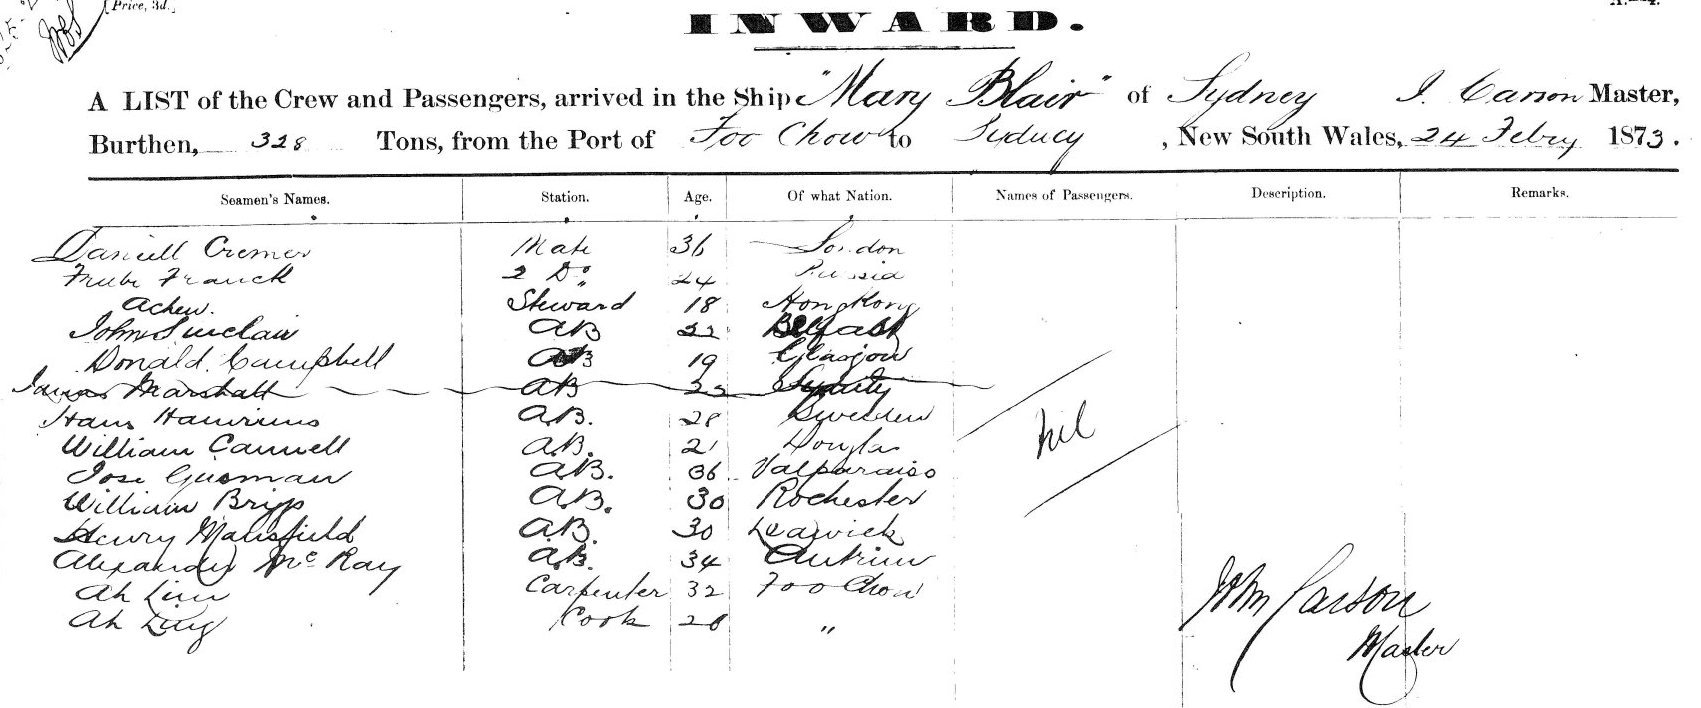 [Price, 3d.]
INWARD.
A LIST of the Crew and Passengers, arrived in the Ship "Mary Blair" of Sydney J. Carson Master,
Burthen, 328 Tons, from the Port of Foo Chow to Sydney, New South Wales, 24 Febry 1873.
Seamen's Names. Station. Age. Of what Nation. Names of Passengers. Description. Remarks.
Daniell Cremer Mate 36 London
Franck 2 Do. 24 Russia
Achew. Steward 18 Hong Kong
John Sinclair AB 22 Belfast
Donald Campbell AB 19 Glasgow
James Marshall AB 22
Hans A.B. 28 Sweden
nil
William Cannell A.B. 21 Douglas
Jose Gusman A.B. 36 Valparaiso
William Briggs A.B. 30 Rochester
Henry Mansfield A.B. 30 Learwick
Alexander McRay A.B. 34 Antrim
Ah Lim Carpenter 32 Foo Chow
Ah Ling Cook 28 "
John Carson
Master